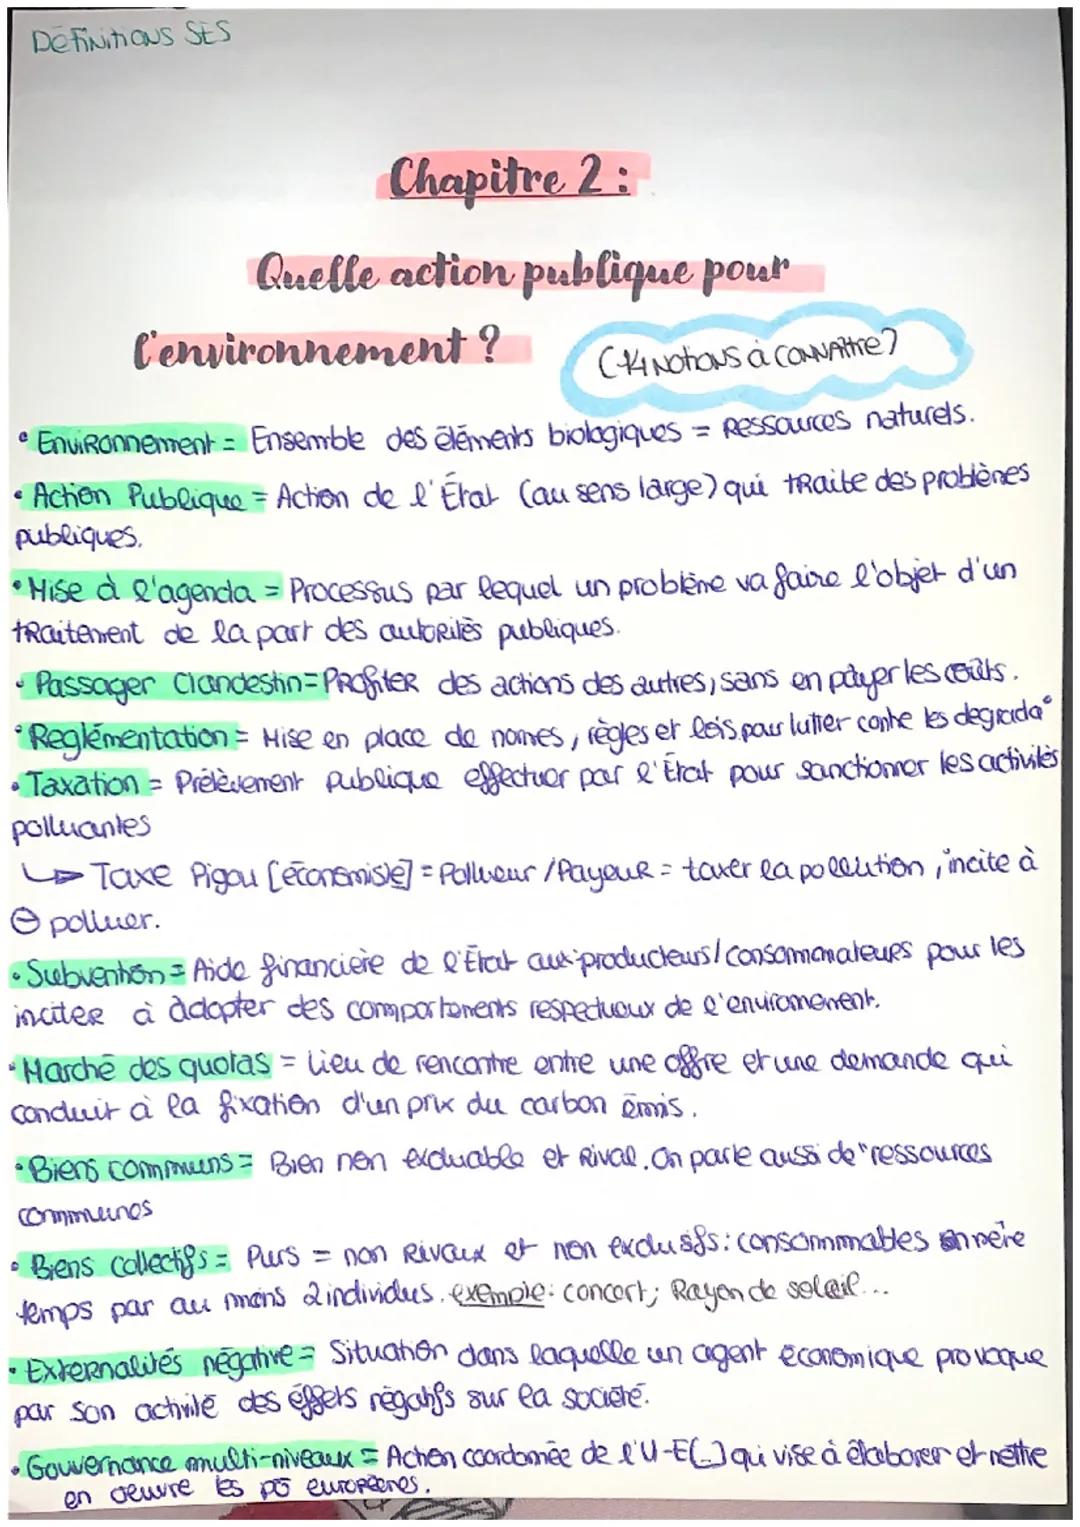 Définitions SES
Chapitre 2 :
Quelle action publique pour
l'environnement ?
(14 Notions à connaître)
• Environnement = Ensemble des éléments biologiques = Ressources naturels.
• Action Publique = Action de l'État (au sens large) qui traite des problèmes
publiques.
• Mise à l'agenda = Processus par lequel un problème va faire l'objet d'un
traitement de la part des autorités publiques.
• Passager Clandestin = Profiter des actions des autres, sans en payer les coûts.
• Reglémentation = Mise en place de normes, règles et lois pour lutter contre les degrada°
• Taxation = Prélèvement publique effectuer par l'État pour sanctionner les activités
polluantes
↳ Taxe Pigou [économiste] = Pollueur / Payeur = taxer la pollution, incite à
⊖ polluer.
• Subvention = Aide financière de l'État aux producteurs/consommateurs pour les
inciter à adopter des comportements respectueux de l'environnement.
• Marché des quotas = Lieu de rencontre entre une offre et une demande qui
conduit à la fixation d'un prix du carbon émis.
• Biens communs = Bien non excluable et Rival. On parle aussi de "ressources
communes
• Biens collectifs = Purs = non Rivaux et non exclusifs : consommables en même
temps par au moins 2 individus. exemple : concert ; Rayon de soleil...
• Externalités négative = Situation dans laquelle un agent économique provoque
par son activité des éffets négatifs sur la société.
• Gouvernance multi-niveaux = Action coordonnée de l'U-E (...) qui vise à élaborer et mettre
en oeuvre les po européenes.